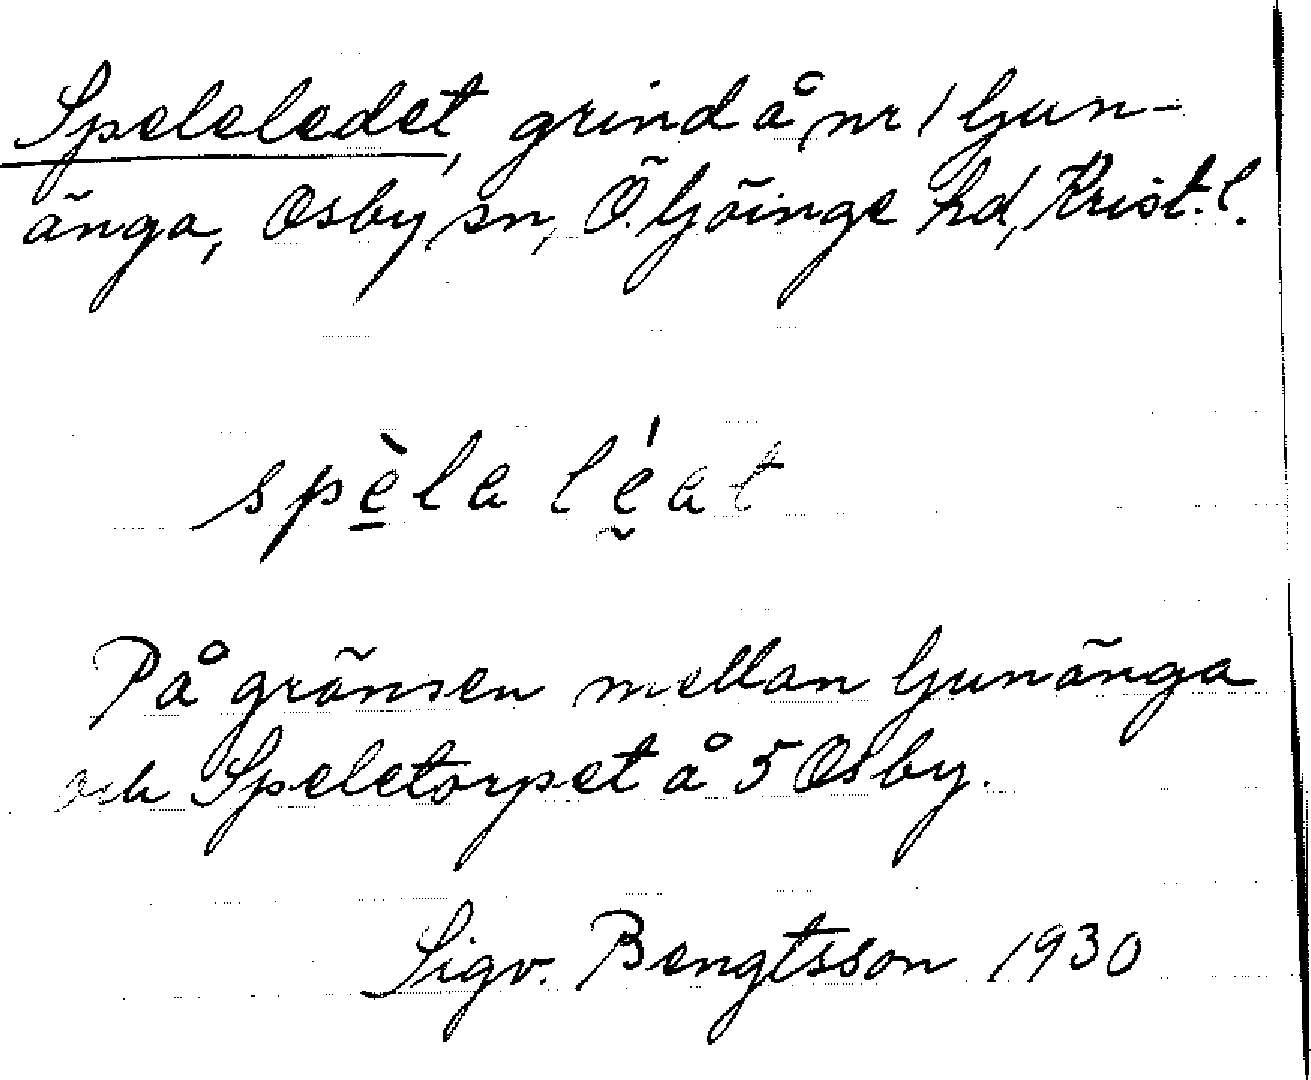 Speleledet, grind å nr 1 Ljun-
änga, Osby sn, Ö. Göinge hd, Krist. l.
spèla léat
På gränsen mellan Ljunänga
och Speletorpet å 5 Osby.
Sigv. Bengtsson 1930